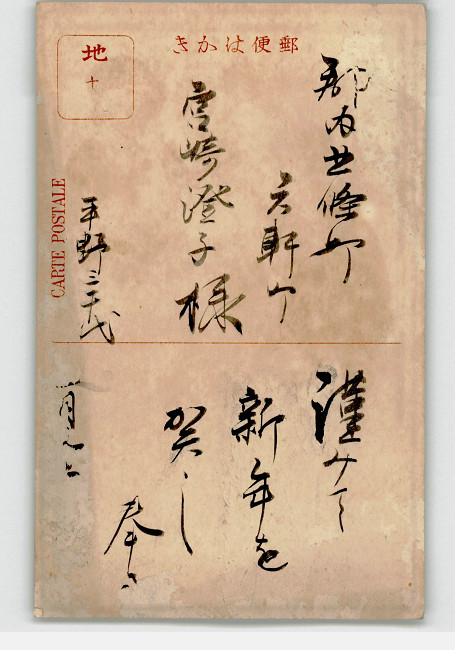 郵便はかき
地
十
CARTE POSTALE
郡内五條町
六軒町
宮崎澄子様
平野三千代
謹みて
新年を
賀し
奉る